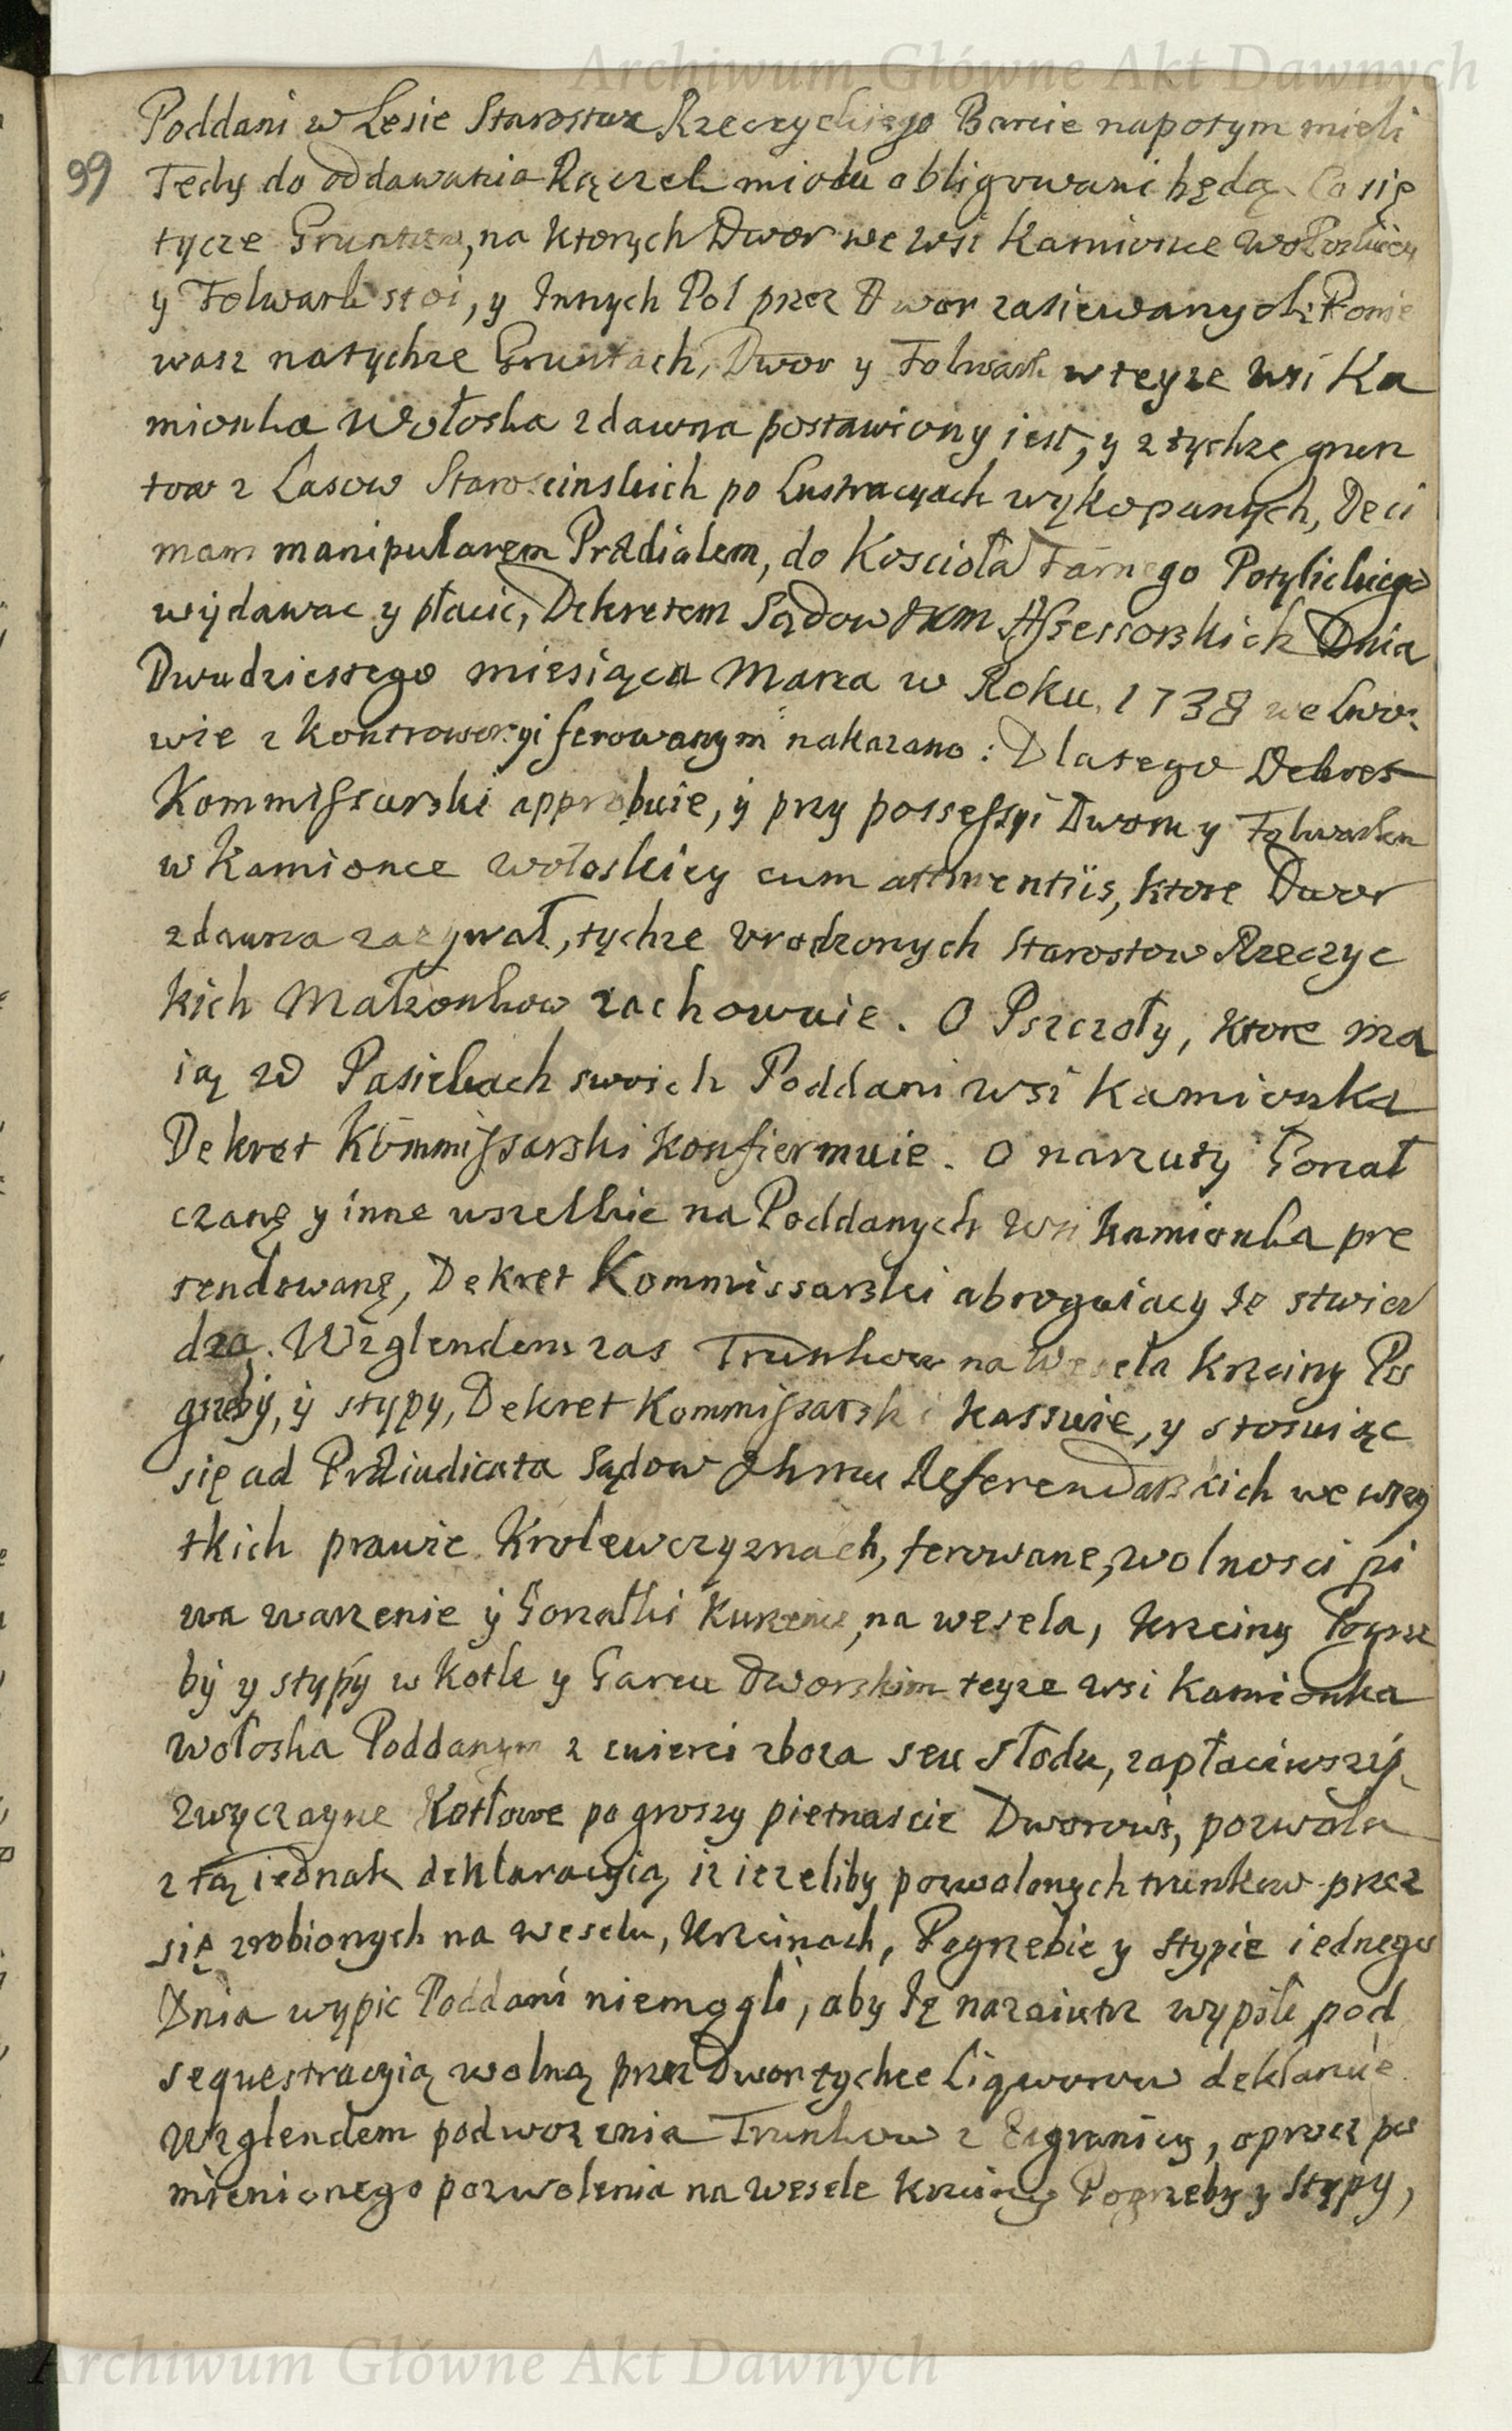 Archiwum Główne Akt Dawnych
99
Poddani w Lesie Starostwa Rzeczyckiego Barcie napotym mieli
Tedy do oddawania Rączek miodu obligowani będą. Co się
tycze Gruntow, na ktorych Dwor we wsi Kamionce Wołoskiey
y Folwark stoi, y Innych Pol przez Dwor zasiewanych: Ponie
wasz natychze Gruntach, Dwor y Folwark wteyze wsi Ka
mionka Wołoska zdawna postawiony iest, y ztychze grun
tow z Lasow Starościnskich po Lustracyach wykopanych, Deci
mam manipularem Prædialem, do Kościoła Farnego Potylickiego
wydawac y płacic, Dekretem Sądow Assessorskich Dnia
Dwudziestego miesiąca Marca w Roku 1738 we Lwo
wie z kontrowersyi ferowanym nakazano: Dlatego Dekret
Kommissarski approbuie, y przy possessyi Dworu y Folwarku
w Kamionce wołoskiey cum attinentiis, ktore Dwor
zdawna zazywał, tychze Urodzonych Starostow Rzeczyc
kich Małzonkow zachowuie. O Pszczoły, ktore ma
ią w Pasiekach swoich Poddani wsi Kamionka
Dekret Kommissarski konfiermuie. O narzuty Gorzał
czanę y inne wszelkie na Poddanych wsi kamionka pre
tendowanę, Dekret Kommissarski abroguiacy te stwier
dza. Wzglendem zas Trunkow na Wesela krzciny Po
grzeby, y stypy, Dekret Kommissarski kassuie, y stosuiąc
się ad Præiudicata Sądow Referendarskich we wszy
tkich prawie Krolewczyznach, ferowane, wolnosci pi
wa warzenie y Gorzałki kurzenie, na wesela, krzciny Pogrze
by y stypy w kotle y Garcu Dworskim teyze wsi kamionka
Wołoska Poddanym z cwierci zboza seu słodu, zapłaciwszy
zwyczayne Kotłowe po groszy pietnascie Dworowi, pozwala
z tą iednak deklaracyią, iz iezeliby pozwolonych trunkow przez
się zrobionych na weselu, krzcinach, Pogrzebie y stypie iednego
Dnia wypic Poddani niemogli, aby tę nazaiutrz wypili pod
sequestracyią wolną przez Dwor tychze Liqworow deklaruie
Wzglendem podwozenia Trunkow z Zagranicy, oprocz po
mienionego pozwolenia na Wesele krzciny Pogrzeby y Stypy,
Archiwum Główne Akt Dawnych